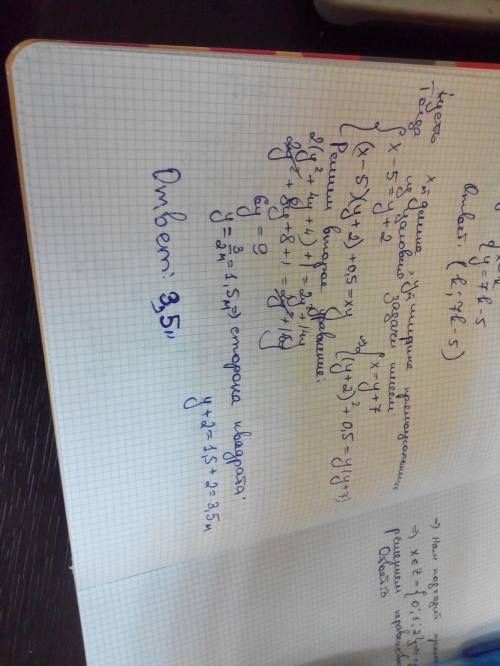 y = 7k - 5
Ответ: (k; 7k - 5)
Пусть x м длина, y м ширина прямоугольника
Тогда из условия задачи имеем:
{ x - 5 = y + 2
(x - 5)(y + 2) + 0,5 = xy
=> { x = y + 7
(y + 2)² + 0,5 = y(y + 7)
Решим второе уравнение:
2(y² + 4y + 4) + 1 = 2y² + 14y
2y² + 8y + 8 + 1 = 2y² + 14y
6y = 9
y = 3/2 м = 1,5 м => сторона квадрата:
y + 2 = 1,5 + 2 = 3,5 м
Ответ: 3,5 м
=> Нам подходит
=> x ∈ Z = {0; 1; 2
решением
Ответ: 3